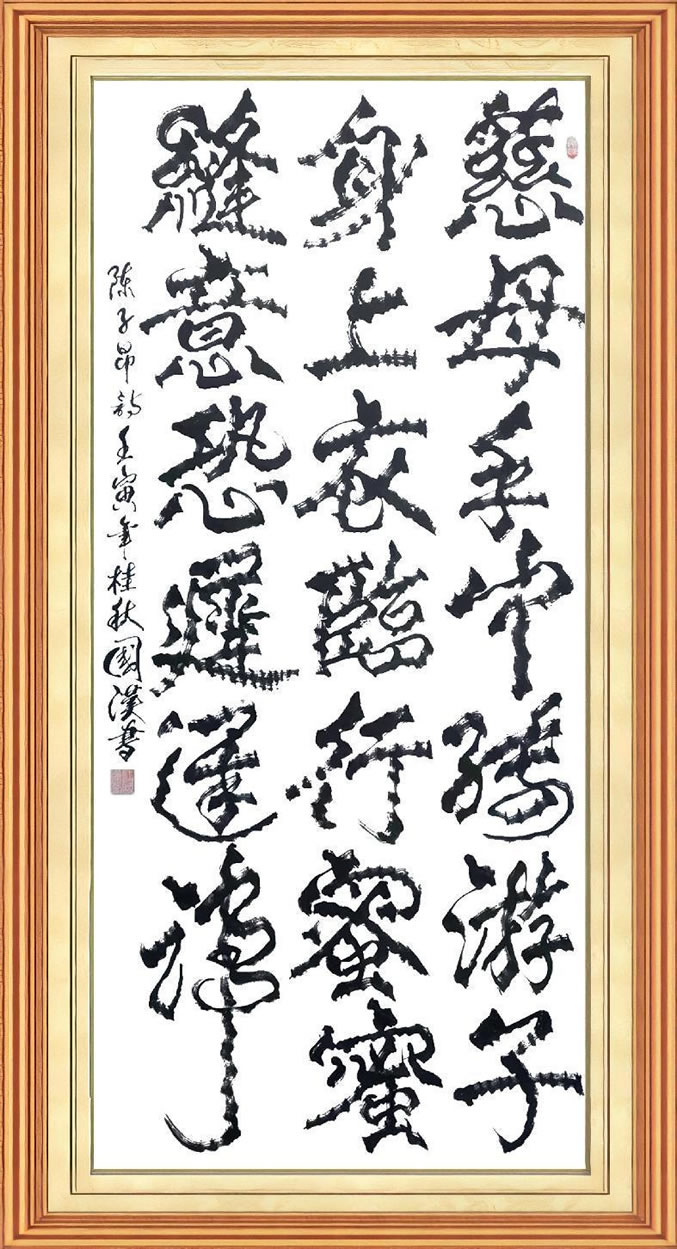 慈母手中綫游子
身上衣臨行蜜蜜
縫意恐遲遲歸
陈子昂诗壬寅年桂秋國漢書